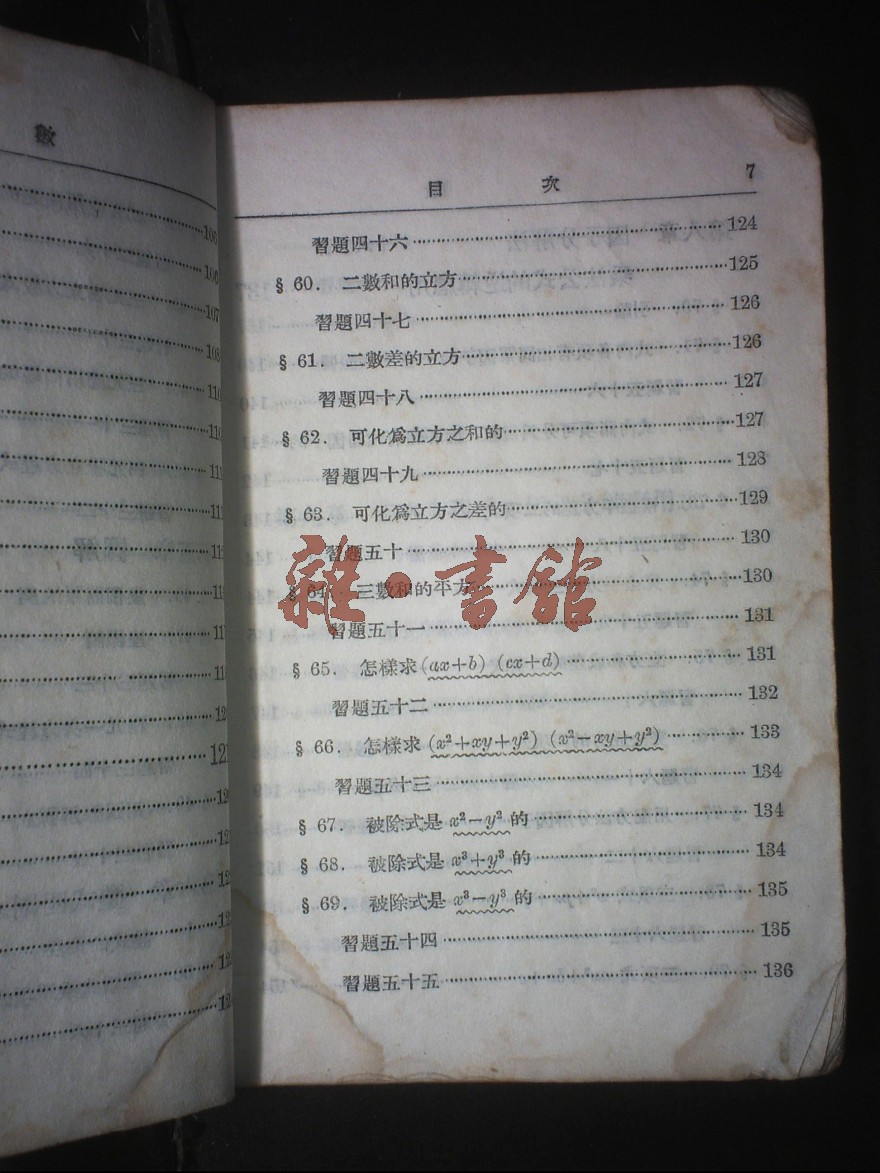 數
106
106
107
108
110
110
目 次 7
習題四十六 124
§ 60. 二數和的立方 125
習題四十七 126
§ 61. 二數差的立方 126
習題四十八 127
§ 62. 可化爲立方之和的 127
習題四十九 128
§ 63. 可化爲立方之差的 129
習題五十 130
§ 64. 三數和的平方 130
習題五十一 131
§ 65. 怎樣求(ax+b) (cx+d) 131
習題五十二 132
§ 66. 怎樣求(x²+xy+y²) (x²−xy+y²) 133
習題五十三 134
§ 67. 被除式是 x²−y² 的 134
§ 68. 被除式是 x³+y³ 的 134
§ 69. 被除式是 x³−y³ 的 135
習題五十四 135
習題五十五 136
雜·書館